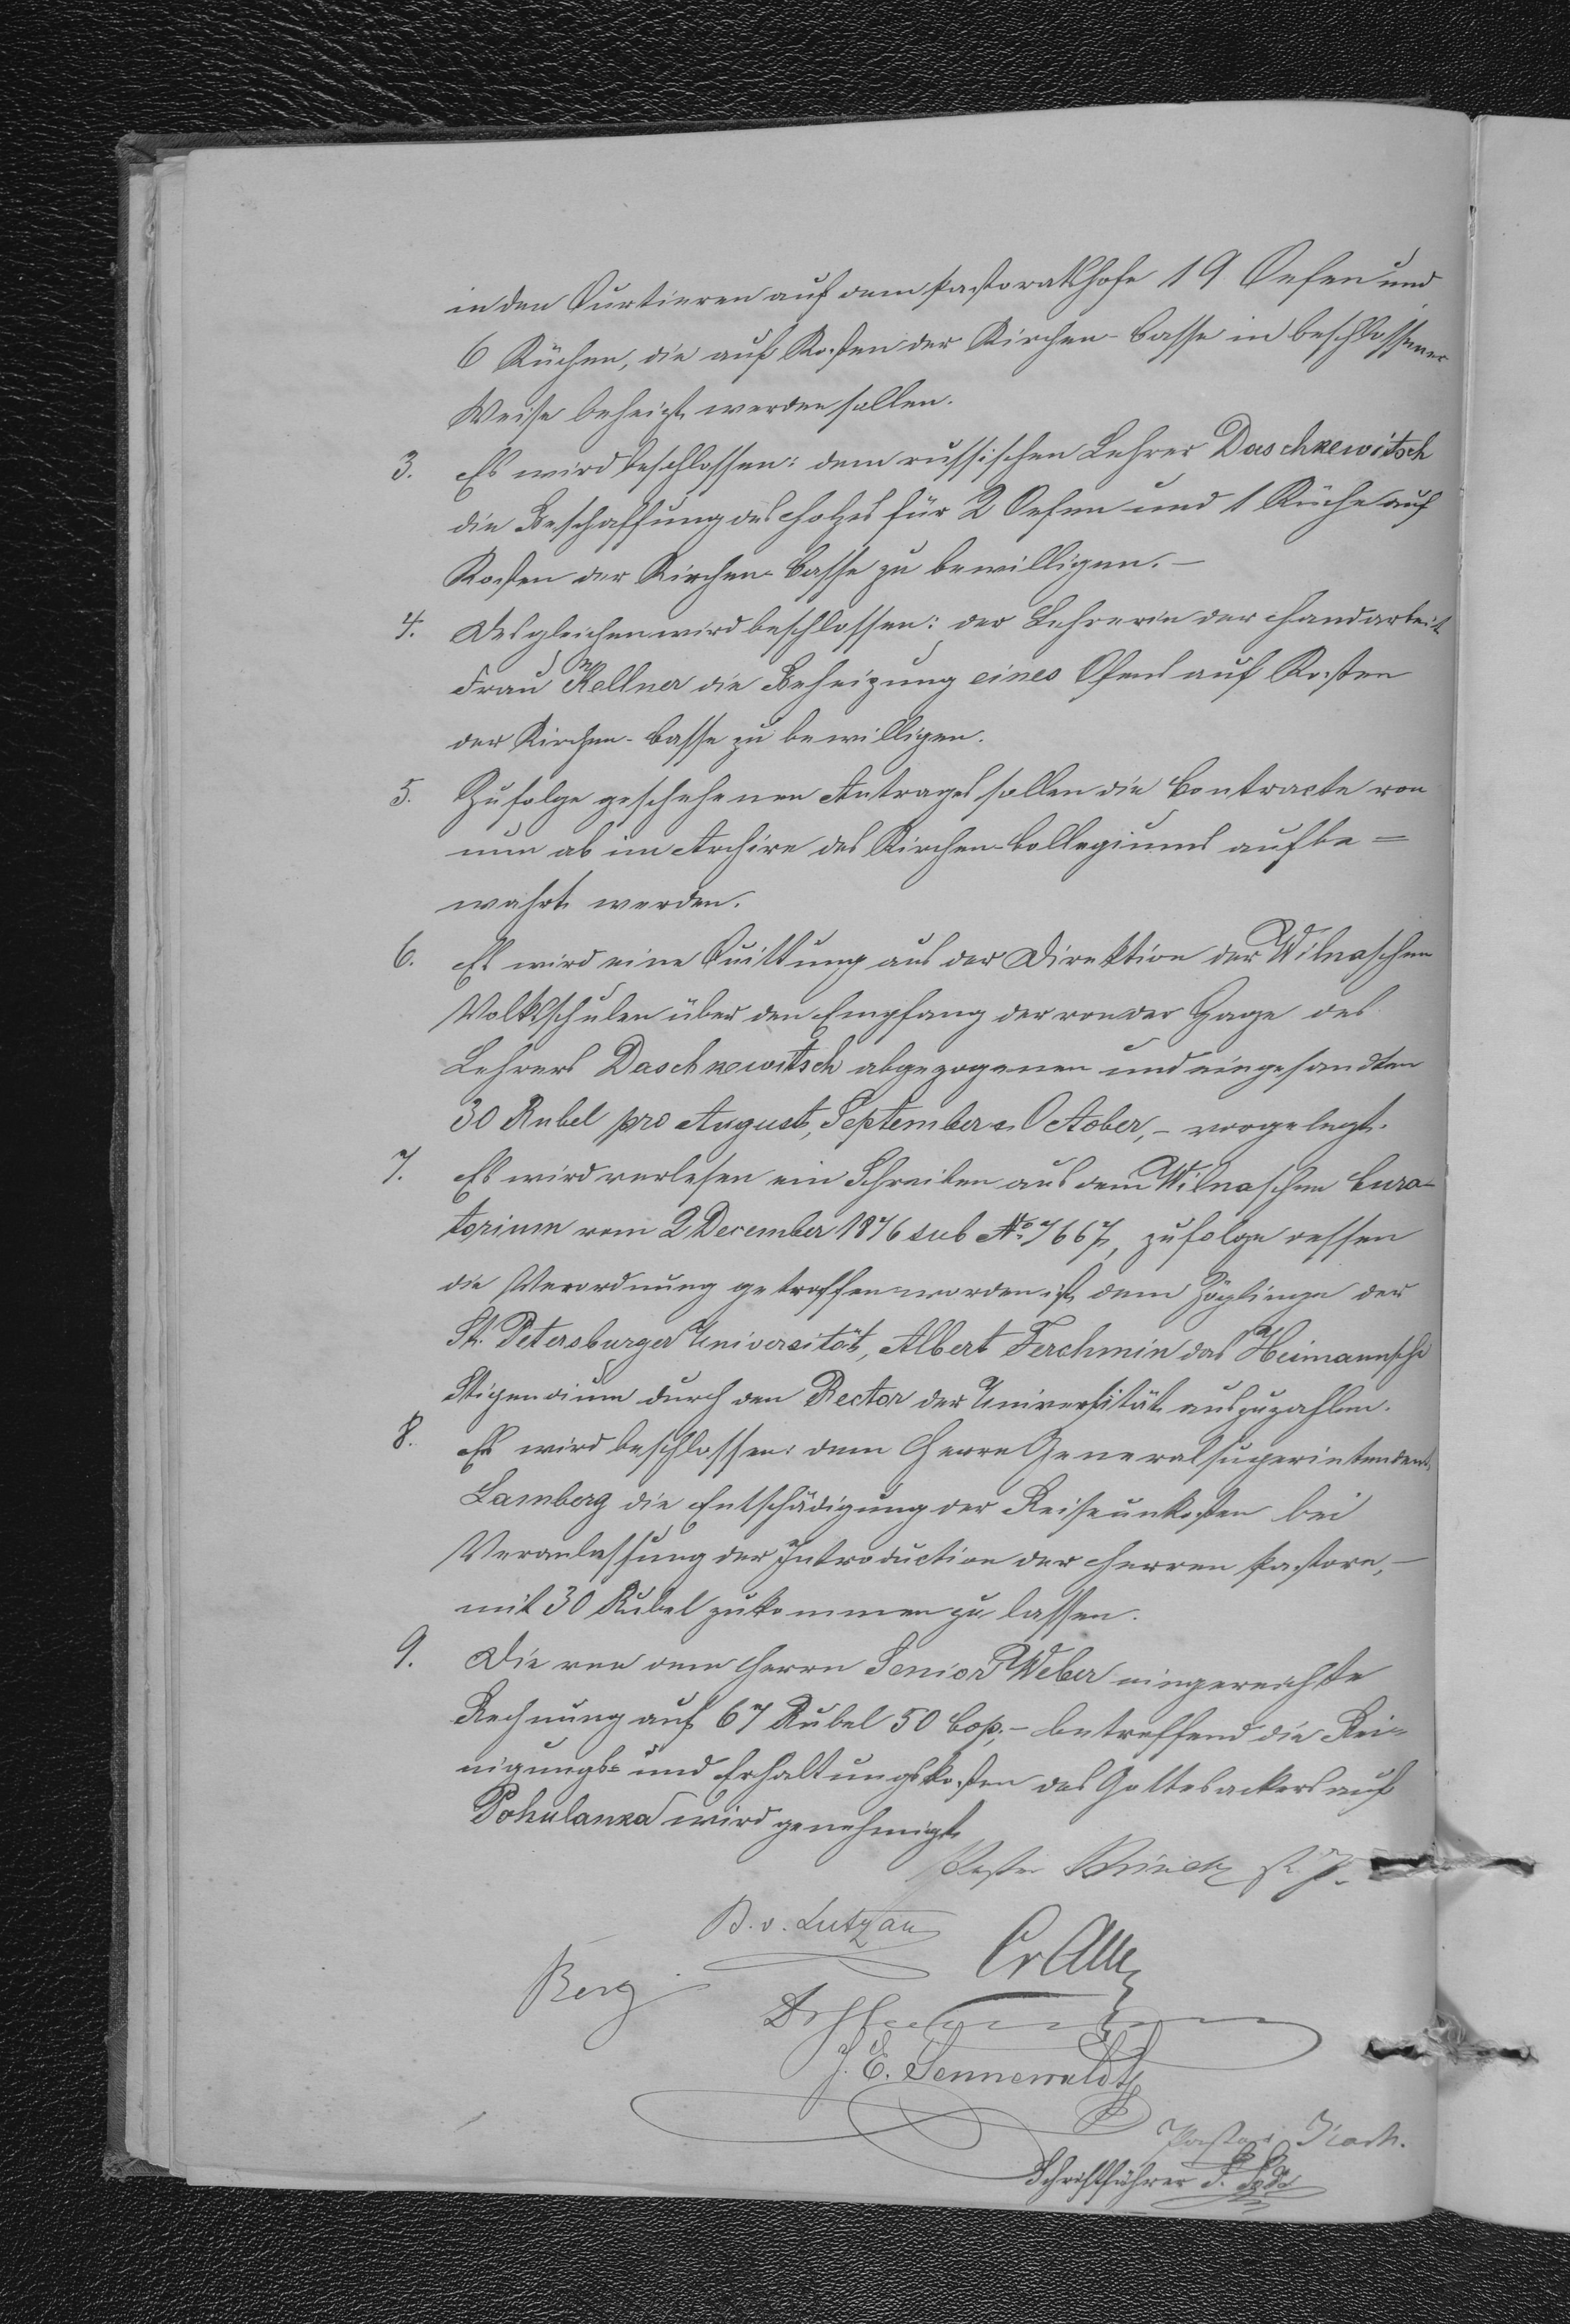 in den Quartieren auf dem Pastoratshofe 19 Oefen und
6 Küchen, die auf Kosten der Kirchen-Casse in beschlossener
Weise beheizt werden sollen.
3. Es wird beschlossen: dem russischen Lehrer Daschkewitsch
die Beschaffung des Holzes für 2 Oefen und 1 Küche auf
Kosten der Kirchen-Casse zu bewilligen.-
4. Desgleichen wird beschlossen: der Lehrerin der Handarbeit
Frau Kellner die Beheizung eines Ofens auf Kosten
der Kirchen-Casse zu bewilligen.
5. Zufolge geschehenen Antrages sollen die Contracte von
nun ab im Archive des Kirchen-Collegiums aufbe=
wahrt werden.
6. Es wird eine Quittung aus der Direktion der Wilnaschen
Volksschulen über den Empfang der von der Gage des
Lehrers Daschkewitsch abgezogenen und eingesandten
30 Rubel pro August, September u. October,- vorgelegt.
7. Es wird verlesen ein Schreiben aus dem Wilnaschen Cura-
torium vom 2 December 1876 sub No 7667, zufolge dessen
die Verordnung getroffen worden ist, dem Zöglinge der
St. Petersburger Universität, Albert Ferchmin das Heimannsche
Stipendium durch den Rector der Universität auszuzahlen.
8. Es wird beschlossen: dem Herrn Generalsuperintendent
Lamberg die Entschädigung der Reiseunkosten bei
Veranlassung der Introduction der Herren Pastore,-
mit 30 Rubel zukommen zu lassen.
9. Die von dem Herrn Senior Weber eingereichte
Rechnung auf 67 Rubel 50 Cop,- betreffend die Rei=
nigungs= und Erhaltungskosten des Gottesackers auf
Pohulanka wird genehmigt
Pastor
B. v. Lutzau
Berg
J. E. Sennewaldt
Pastor
Schriftführer